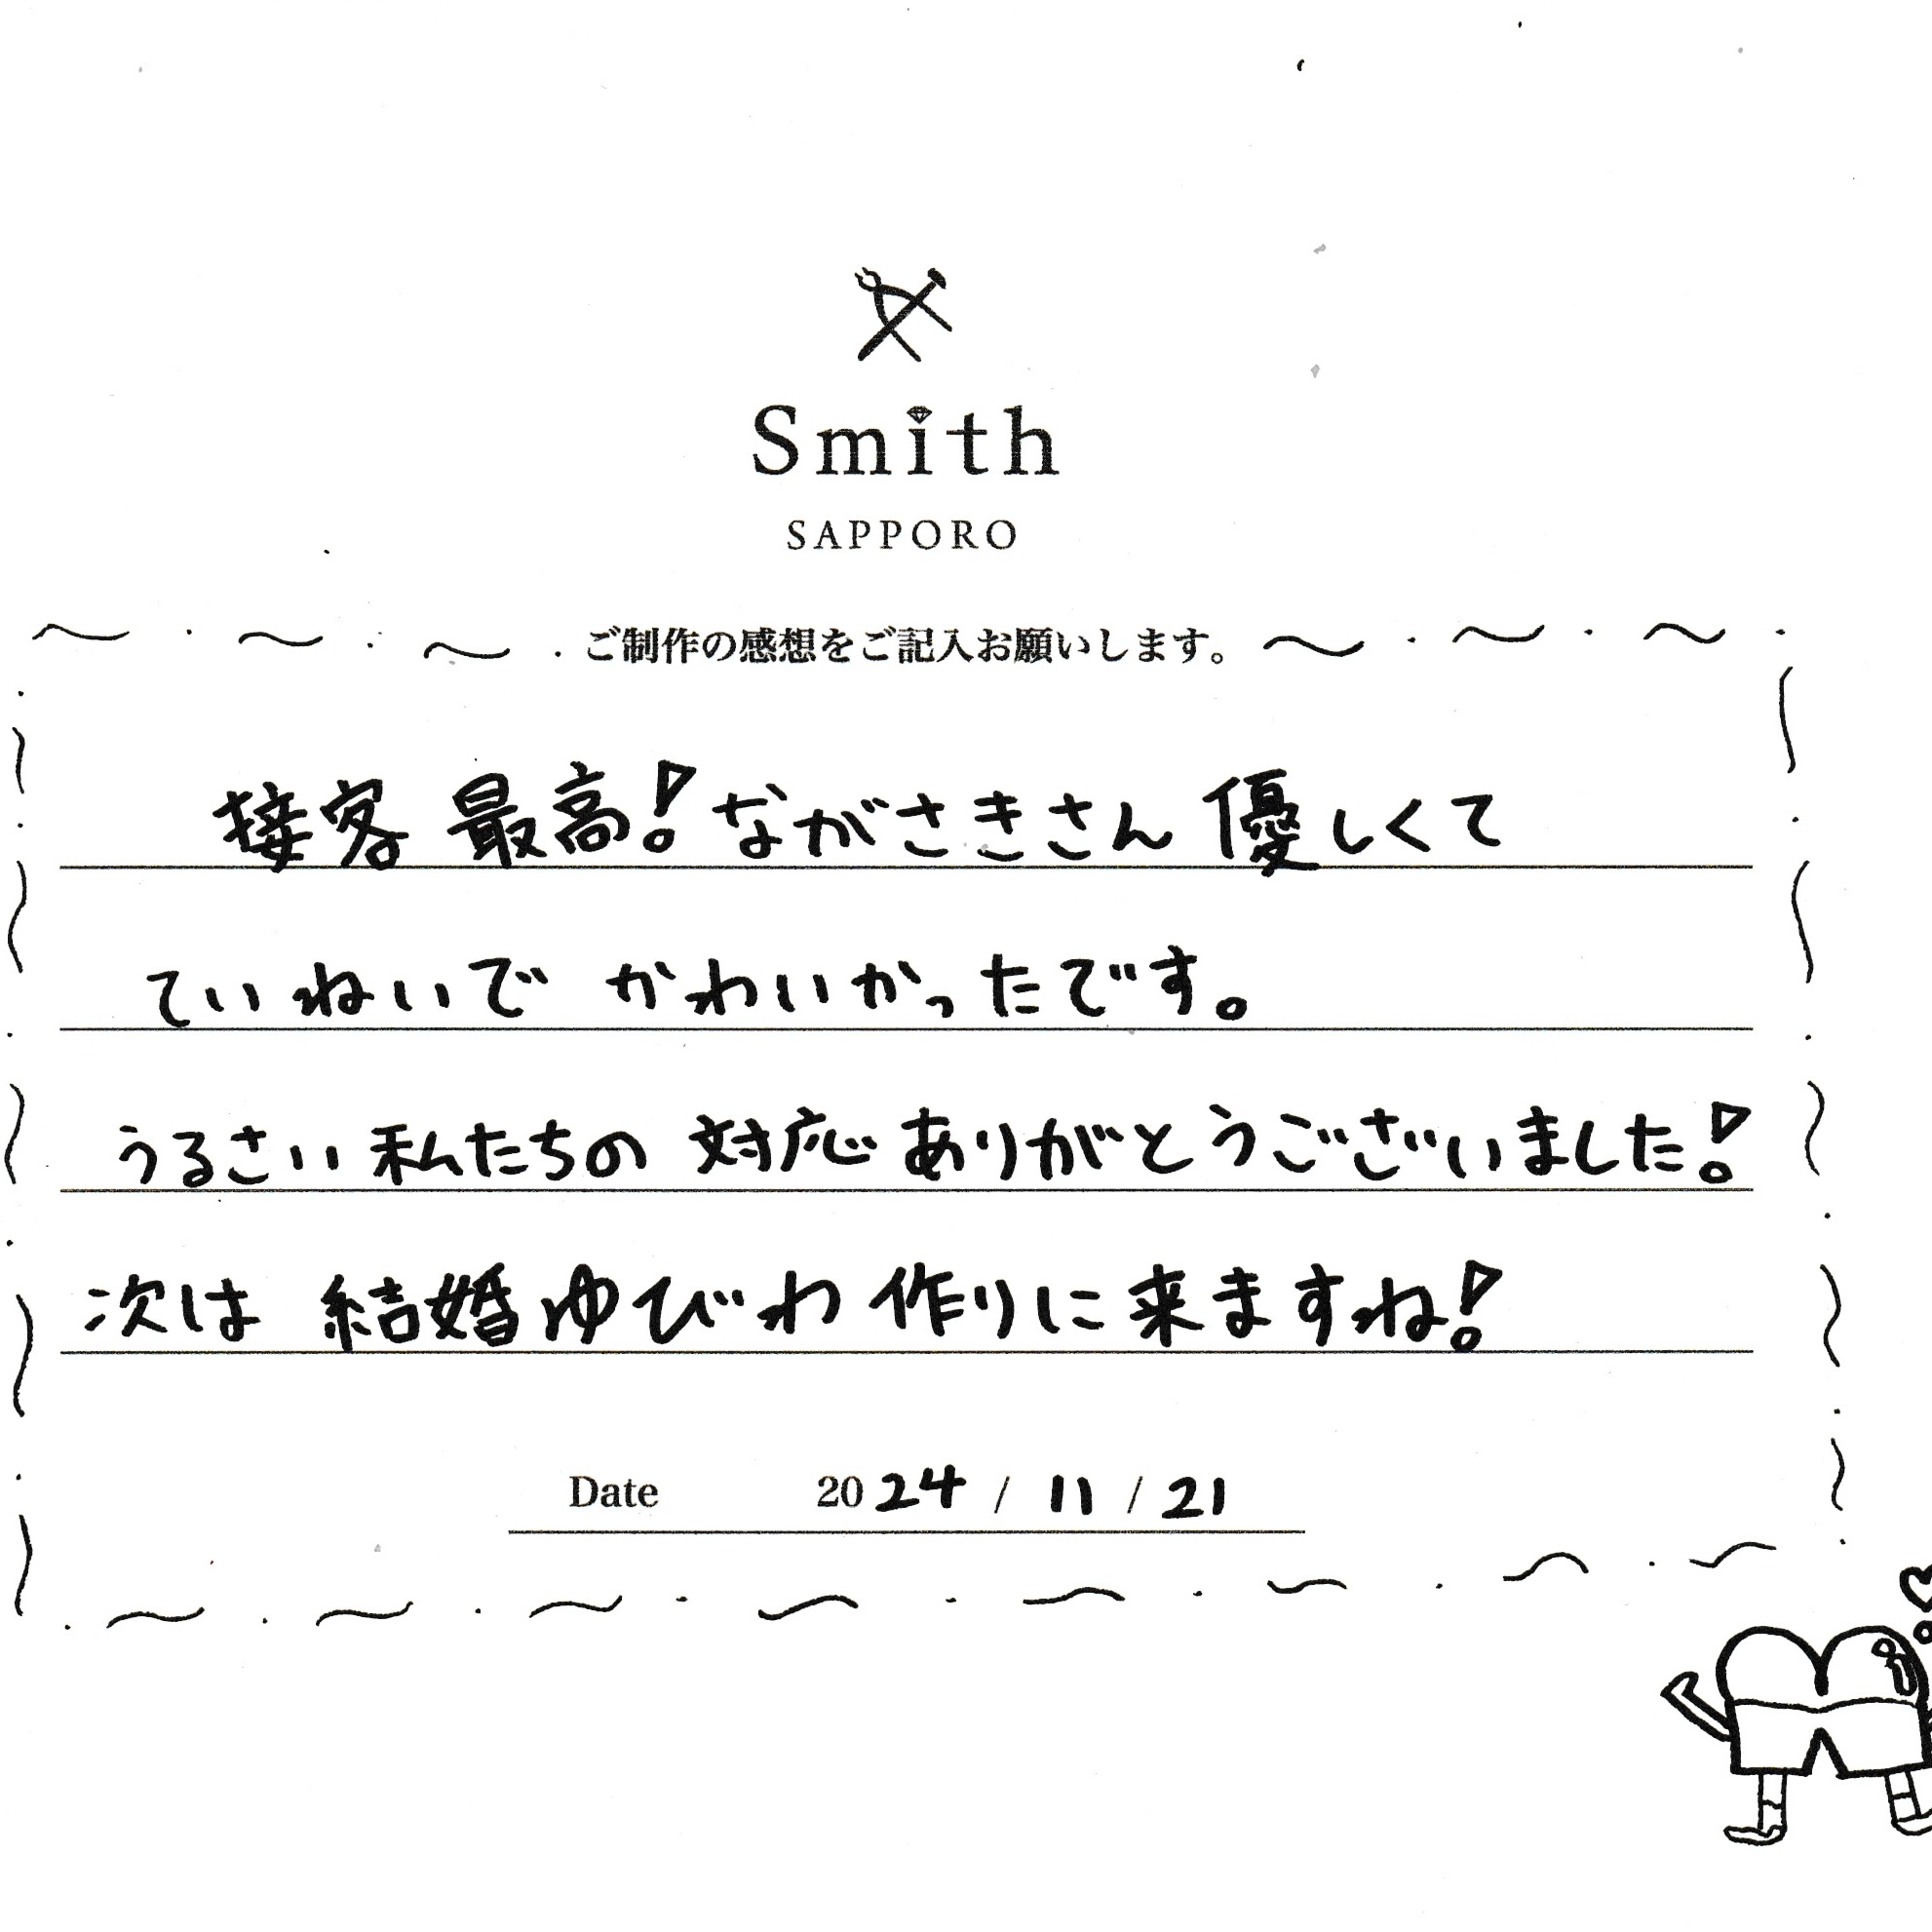 Smith
SAPPORO
ご制作の感想をご記入お願いします。
接客 最高!ながさきさん 優しくて
ていねいで かわいかったです。
うるさい 私たちの 対応 ありがとうございました!
次は 結婚ゆびわ 作りに来ますね!
Date 2024 / 11 / 21